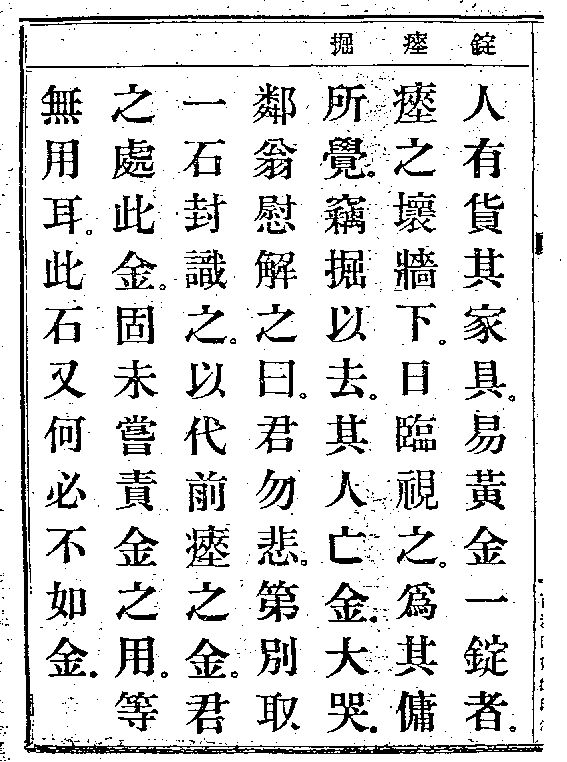 錠 瘞 掘
人有貨其家具。易黃金一錠者。
瘞之壞牆下。日臨視之。爲其傭
所覺。竊掘以去。其人亡金。大哭。
鄰翁慰解之曰。君勿悲。第別取
一石封識之。以代前瘞之金。君
之處此金。固未嘗責金之用。等
無用耳。此石又何必不如金。